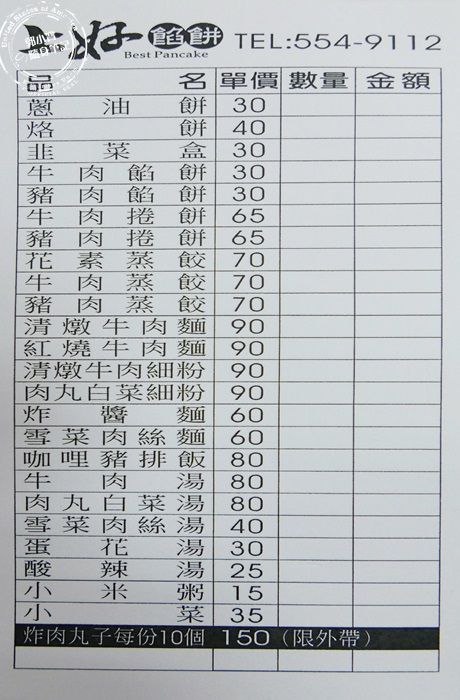 好餡餅 TEL:554-9112
Best Pancake
品名 單價 數量 金額
蔥油餅 30
烙餅 40
韭菜盒 30
牛肉餡餅 30
豬肉餡餅 30
牛肉捲餅 65
豬肉捲餅 65
花素蒸餃 70
牛肉蒸餃 70
豬肉蒸餃 70
清燉牛肉麵 90
紅燒牛肉麵 90
清燉牛肉細粉 90
肉丸白菜細粉 90
炸醬麵 60
雪菜肉絲麵 60
咖哩豬排飯 80
牛肉湯 80
肉丸白菜湯 80
雪菜肉絲湯 40
蛋花湯 30
酸辣湯 25
小米粥 15
小菜 35
炸肉丸子每份10個 150 (限外帶)